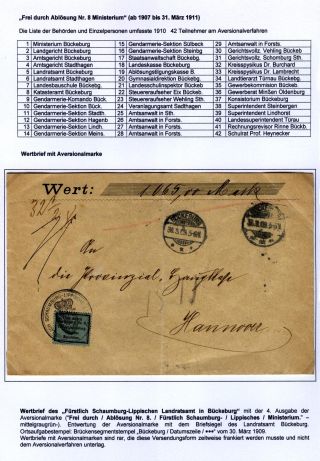 „Frei durch Ablösung Nr. 8 Ministerium“ (ab 1907 bis 31. März 1911)
Die Liste der Behörden und Einzelpersonen umfasste 1910 42 Teilnehmer am Aversionalverfahren
1 Ministerium Bückeburg 15 Gendarmerie-Sektion Sülbeck 29 Amtsanwalt in Forsts.
2 Landgericht Bückeburg 16 Gendarmerie-Sektion Steinbg 30 Gerichtsvollz. Vehling Bückeb
3 Amtsgericht Bückeburg 17 Staatsanwaltschaft Bückebg. 31 Gerichtsvollz. Schomburg Sth
4 Amtsgericht Stadthagen 18 Landeskasse Bückeburg 32 Kreisspysikus Dr. Burchard
5 Landratsamt Bückeburg 19 Ablösungstilgungskasse B. 33 Kreisspysikus Dr. Lambrecht
6 Landratsamt Stadthagen 20 Gymnasialdirektion Bückebg. 34 Kreistierarzt Bückeburg
7 Landesseminar Bückeburg 21 Landesvermessung Bückebg. 35 Gewerbekommision Bückeb.
8 Katasteramt Bückeburg 22 Steuererafseiter Eix Bückebg 36 Gewerberat Minßen Oldenburg
9 Gendarmerie-Komando Bück. 23 Steuererafseiter Wehling Sth 37 Konsistorium Bückeburg
10 Gendarmerie-Sektion Bück. 24 Veranlagungsamt Stadthagen 38 Superintendent Steinbergen
11 Gendarmerie-Sektion Stadth 25 Amtsanwalt in Forsts. 39 Superintendent Lindhorst
12 Gendarmerie-Sektion Hagenb 26 Amtsanwalt in Forsts. 40 Landessuperintendent Türau
13 Gendarmerie-Sektion Lindh. 27 Amtsanwalt in Forsts. 41 Rechnungsrevisor Rinne Bückb.
14 Gendarmerie-Sektion Meins. 28 Amtsanwalt in Forsts. 42 Schulrat Prof. Heynecker
Wertbrief mit Aversionalmarke
Wert: 1065,00 Mark
An
die Provinzial-Hauptkasse
Hannover
Wertbrief des „Fürstlich Schaumburg-Lippischen Landratsamt in Bückeburg“ mit der 4. Ausgabe der
Aversionalmarke ("Frei durch / Ablösung Nr. 8. / Fürstlich Schaumburg- / Lippisches / Ministerium." –
mittelgraugrün-). Entwertung der Aversionalmarke mit dem Briefsiegel des Landratsamt Bückeburg.
Ortsaufgabestempel: Brückensegmentstempel „Bückeburg / Datumszeile / +++“ vom 30. März 1909.
Wertbriefe mit Aversionalmarken sind rar, da diese Versendungsform zeitweise frankiert werden musste und nicht
dem Aversionalverfahren unterlag.